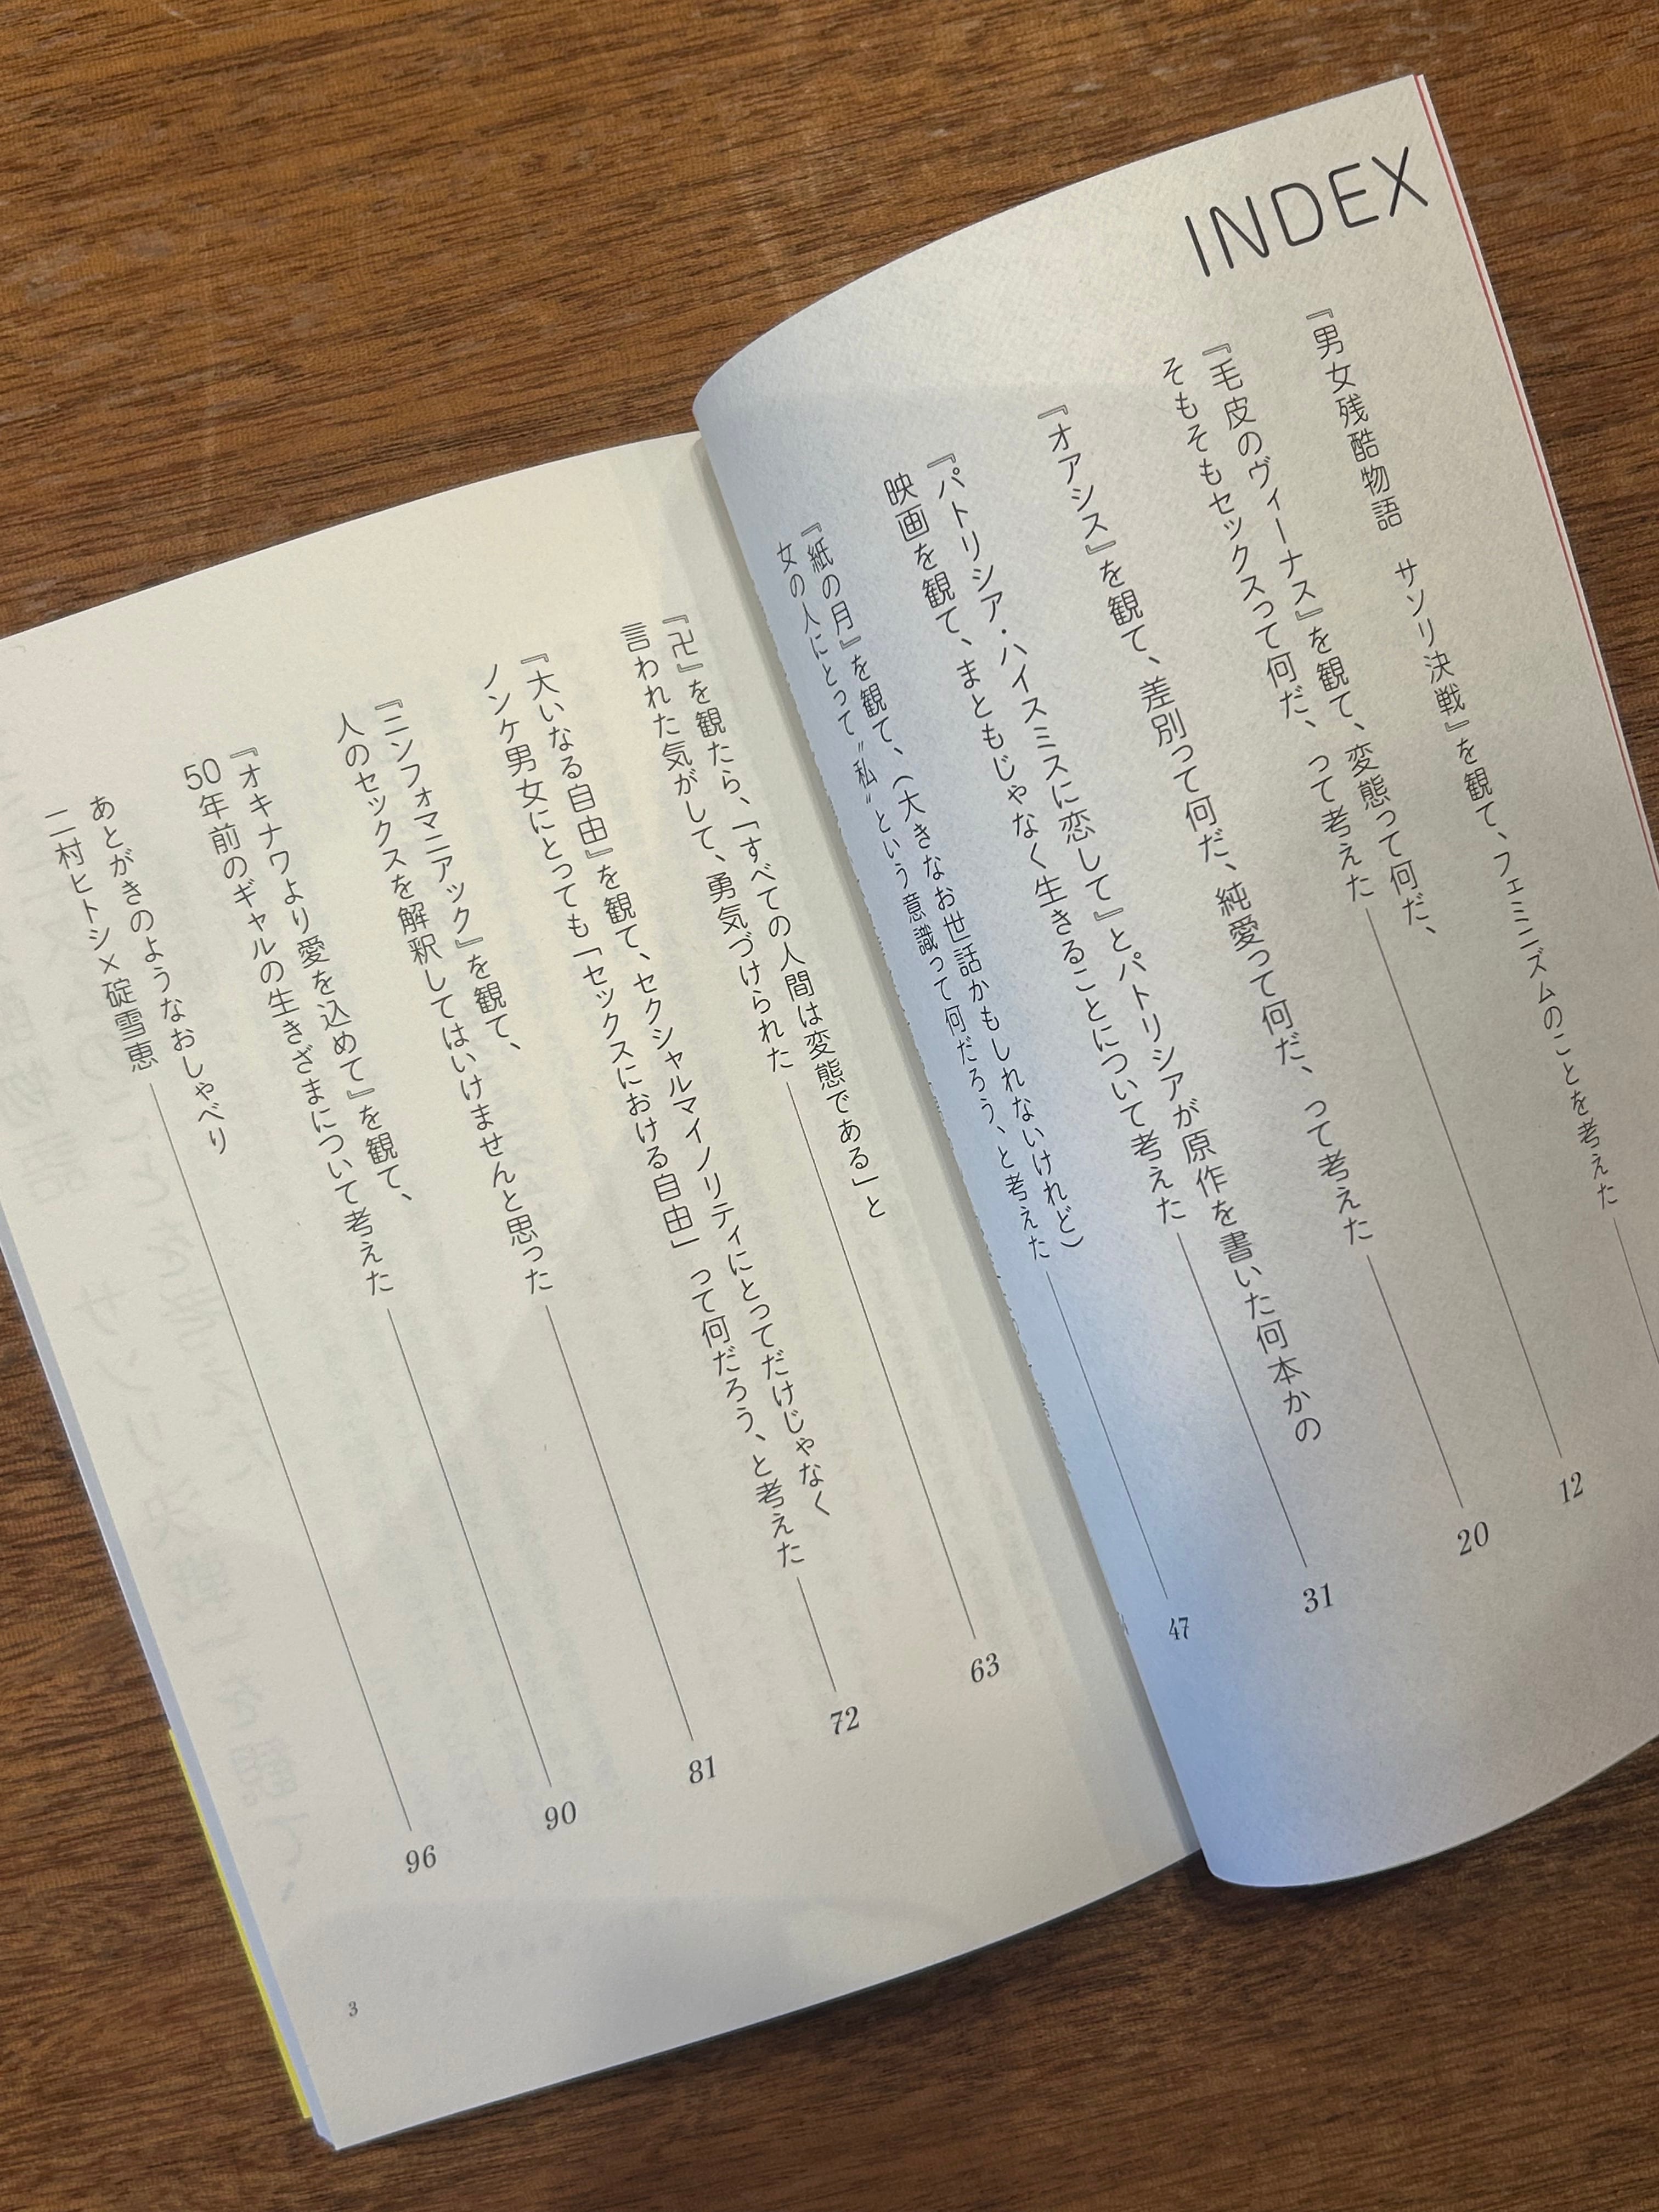 INDEX
『男女残酷物語 サソリ決戦』を観て、フェミニズムのことを考えた
『毛皮のヴィーナス』を観て、変態って何だ、
そもそもセックスって何だ、って考えた
12
『オアシス』を観て、差別って何だ、純愛って何だ、って考えた
20
『パトリシア・ハイスミスに恋して』とパトリシアが原作を書いた何本かの
映画を観て、まともじゃなく生きることについて考えた
31
『紙の月』を観て、(大きなお世話かもしれないけれど)
女の人にとって〝私〟という意識って何だろう、と考えた
47
『卍』を観たら、「すべての人間は変態である」と
言われた気がして、勇気づけられた
63
『大いなる自由』を観て、セクシャルマイノリティにとってだけじゃなく
ノンケ男女にとっても「セックスにおける自由」って何だろう、と考えた
72
『ニンフォマニアック』を観て、
人のセックスを解釈してはいけませんと思った
81
『オキナワより愛を込めて』を観て、
50年前のギャルの生きざまについて考えた
90
あとがきのようなおしゃべり
二村ヒトシ×碇雪恵
96
3